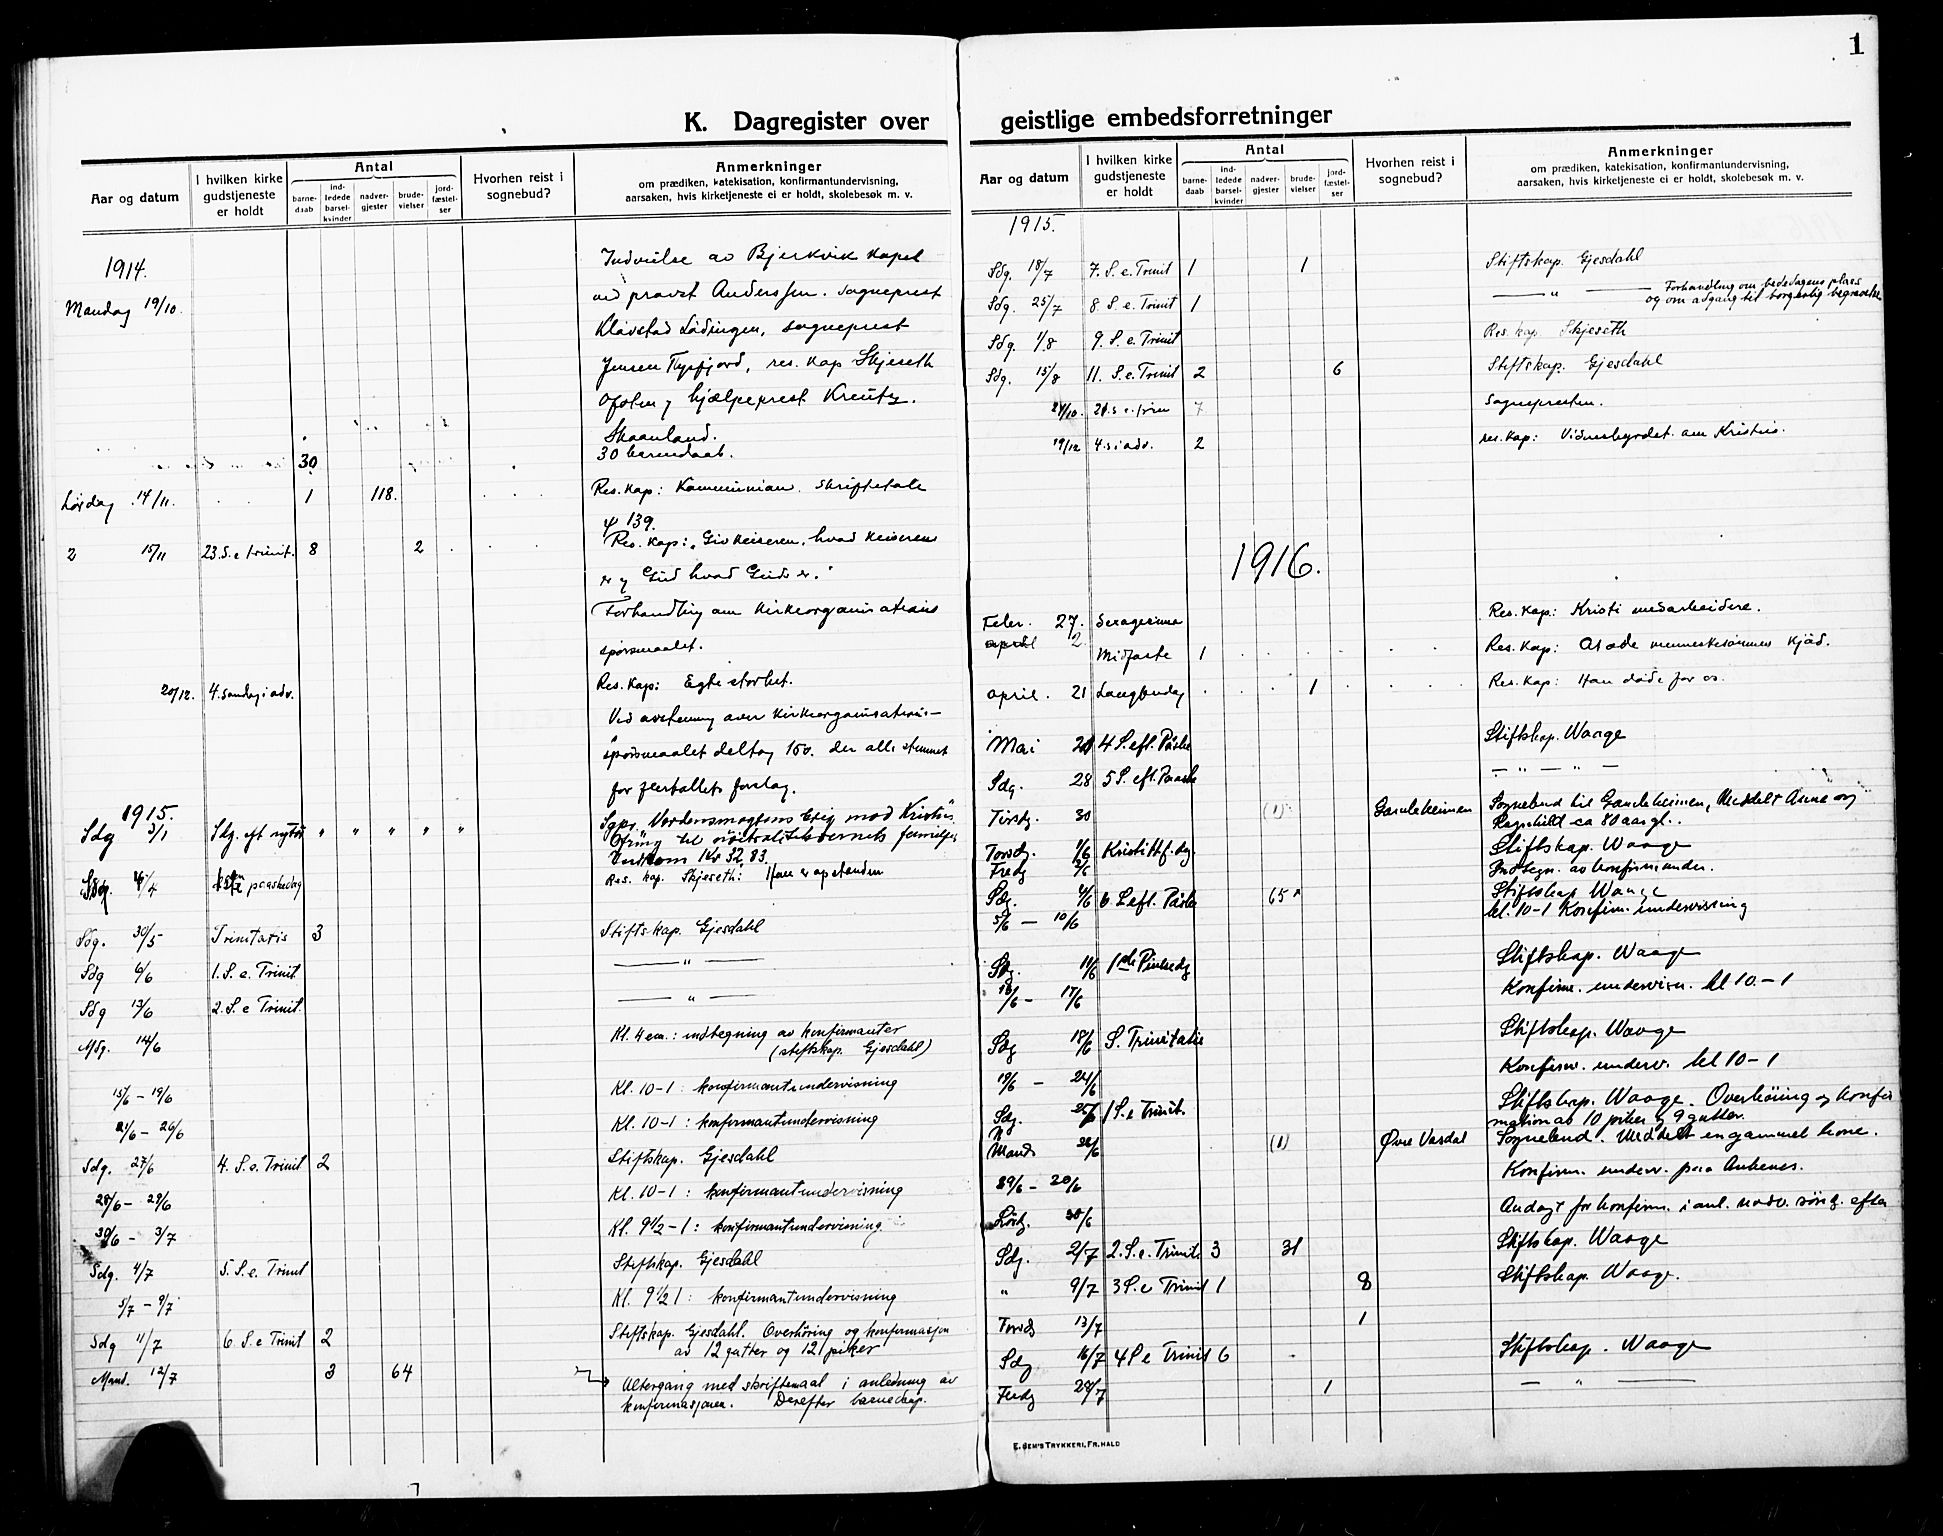 1
K. Dagregister over geistlige embedsforretninger
Aar og datum
I hvilken kirke gudstjeneste er holdt
Antal
barne-daab
ind-ledede barsel-kvinder
nadver-gjester
brude-vielser
jord-fæstel-ser
Hvorhen reist i sognebud?
Anmerkninger
om prædiken, katekisation, konfirmantundervisning,
aarsaken, hvis kirketjeneste ei er holdt, skolebesøk m. v.
1914.
Mandag 19/10. Indvielse av Bjerkvik kapel
ved provst Anderssen. Sogneprest
Klavstad Lødingen, sogneprest
Jensen Tysfjord, res. kap Skjeseth
Ofoten og hjælpeprest Kreutz.
Skaanland.
30 30 barnedaab.
Lørdag 14/11. 1 118. Res. Kap: Kommunion. Skriftetale
ψ 139.
15/11 23. S. e trinit. 8 2 Res. Kap: "Giv keiseren, hvad keiserens
er og Gud hvad Guds er."
Forhandling om kirkeorganisations
spørsmaalet.
20/12. 4. søndag i adv. Res. Kap: Egte storhet.
Ved avstemning over kirkeorganisations-
spørsmaalet deltog 15 v. der alle stemmet
for flertallets forslag.
1915.
Sdg 3/1 Sdg. eft nytår " " " " " Sgpr. Verdensmagtens krig mod Kristus
Ofring til nøitralitetsvernets familjer
Indkom Kr 32,83.
Sdg. 4/4 1ste paaskedag Res. kap. Skjeseth: Han er opstanden
Sdg. 30/5 Trinitatis 3 Stiftskap. Gjesdahl
Sdg 6/6 1. S. e. Trinit. — " —
Sdg 13/6 2. S. e Trinit. — " —
Mdg. 14/6 Kl. 4 em.: indtegning av konfirmanter
(stiftskap. Gjesdahl)
15/6 – 19/6 Kl. 10-1: konfirmantundervisning
21/6 – 26/6 Kl. 10-1: konfirmantundervisning
Sdg. 27/6 4. S. e. Trinit 2 Stiftskap. Gjesdahl
28/6 – 29/6 Kl. 10-1: konfirmantundervisning
30/6 – 3/7 Kl. 9½-1: konfirmantundervisning
Sdg. 4/7 5. S. e. Trinit Stiftskap. Gjesdahl
5/7 – 9/7 Kl. 9½ 1: konfirmantundervisning
Sdg 11/7 6 S. e Trinit 2 Stiftskap. Gjesdahl. Overhøring og konfirmasjon
av 12 gutter og 12 piker
Mand. 12/7 3 64 Altergang med skriftemaal i anledning av
konfirmasjonen. Derefter barnedaap.
Aar og datum
I hvilken kirke gudstjeneste er holdt
Antal
barne-daab
ind-ledede barsel-kvinder
nadver-gjester
brude-vielser
jord-fæstel-ser
Hvorhen reist i sognebud?
Anmerkninger
om prædiken, katekisation, konfirmantundervisning,
aarsaken, hvis kirketjeneste ei er holdt, skolebesøk m. v.
1915.
Sdg. 18/7 7. S. e. Trinit 1 1 Stiftskap. Gjesdahl
Sdg. 25/7 8 S. e Trinit 1 — " — Forhandling om bededagens plads
og om adgang til borgerlig begravelse
Sdg. 1/8 9. S. e. Trinit Res. kap. Skjeseth
Sdg. 15/8 11. S. e. Trinit 2 6 Stiftskap. Gjesdahl
24/10. 21. s e. trin 7 Sognepresten.
19/12 4. s i adv. 2 res. kap: Vidnesbyrdet om Kristus.
1916.
Febr. 27. Sexagesima Res. Kap: Kristi medarbeidere.
april 2 Midfaste 1 Res. Kap: At æde menneskesønnens kjød.
april. 21 Langfredag 1 Res. Kap: Han døde for os.
Mai 21 4 S. eft. Påske Stiftskap. Waage
Sdg. 28 5 S. eft. Paaske — " — " —
Tirsdg. 30 (1) Gamleheimen Sognebud til Gamleheimen, Meddelt Anne og
Ragnhild ca 80 aar gl.
Torsdg. 1/6 Kristi Hf. dg. Stiftskap. Waage
Fredg 2/6 Indtegn. av konfirmander.
Sdg. 4/6 6. S eft. Påske 65 Stiftskap Waage
5/6 – 10/6 kl. 10-1 Konfirm. undervisning
Sdg. 11/6 1ste Pinsedg Stiftskap. Waage
/6 – 17/6 Konfirm. undervisn. kl 10-1
Sdg 18/6 S. Trinitatis Stiftskap. Waage
19/6 – 24/6 Konfirm. underv. kl 10-1
Sdg. 25/6 1 S. e Trinit. Stiftskap. Waage. Overhøring og konfir
mation av 10 piker og 9 gutter.
Mand. /6 (1) Øvre Vasdal Sognebud. Meddelt en gammel kone.
/6 – /6 Konfirm. underv. paa Ankenes.
Lørdg. /6 Andagt for konfirm. i anl. nadv. sønd. efter
Sdg. 2/7 2. S. e. Trinit. 3 31 Stiftskap. Waage
" 9/7 3 S. e Trinit 1 8 Stiftskap. Waage.
Torsdg 13/7 1
Sdg 16/7 4 S e Trinit 6 Stiftskap. Waage
Fredg 28/7 1 — " —
E. SEM'S TRYKKERI, FR.HALD